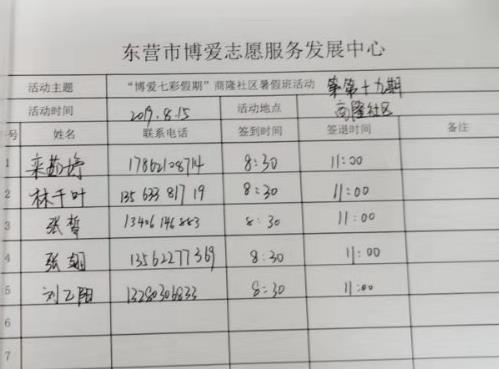 东营市博爱志愿服务发展中心
活动主题 “博爱七彩假期”商隆社区暑假班活动 第第十九期
活动时间 2019.8.15 活动地点 商隆社区
号 姓名 联系电话 签到时间 签退时间 备注
1 栾 17862108714 8:30 11:00
2 林千叶 135 633 817 19 8:30 11:00
3 张哲 13406146883 8:30 11:00
4 张翅 13562277369 8:30 11:00
5 刘乙阳 13280303833 8:30 11:00
6
7